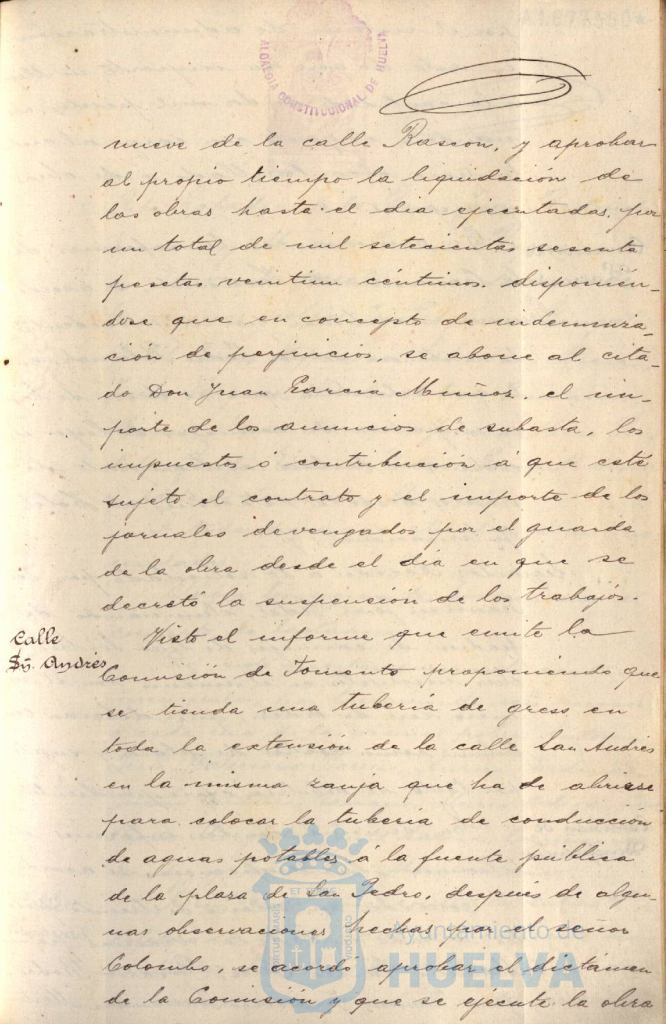 A1.877.550*
ALCALDIA CONSTITUCIONAL DE HUELVA
nueve de la calle Rascon, y aprobar
al propio tiempo la liquidación de
las obras hasta el dia ejecutadas, por
un total de mil setecientas sesenta
pesetas veintiun céntimos, disponién-
dose que en concepto de indemniza-
ción de perjuicios, se abone al cita-
do Don Juan García Muñoz, el im-
porte de los anuncios de subasta, los
impuestos ó contribución á que esté
sujeto el contrato y el importe de los
jornales devengados por el guarda
de la obra desde el dia en que se
decretó la suspensión de los trabajos.
Calle
Sn. Andrés
Visto el informe que emite la
Comisión de Fomento proponiendo que
se tienda una tubería de gress en
toda la extensión de la calle San Andrés
en la misma zanja que ha de abrirse
para colocar la tubería de conducción
de aguas potables á la fuente pública
de la plaza de San Pedro, después de algu-
nas observaciones hechas por el señor
Colombo, se acordó aprobar el dictámen
de la Comisión y que se ejecute la obra
Ayuntamiento de
HUELVA